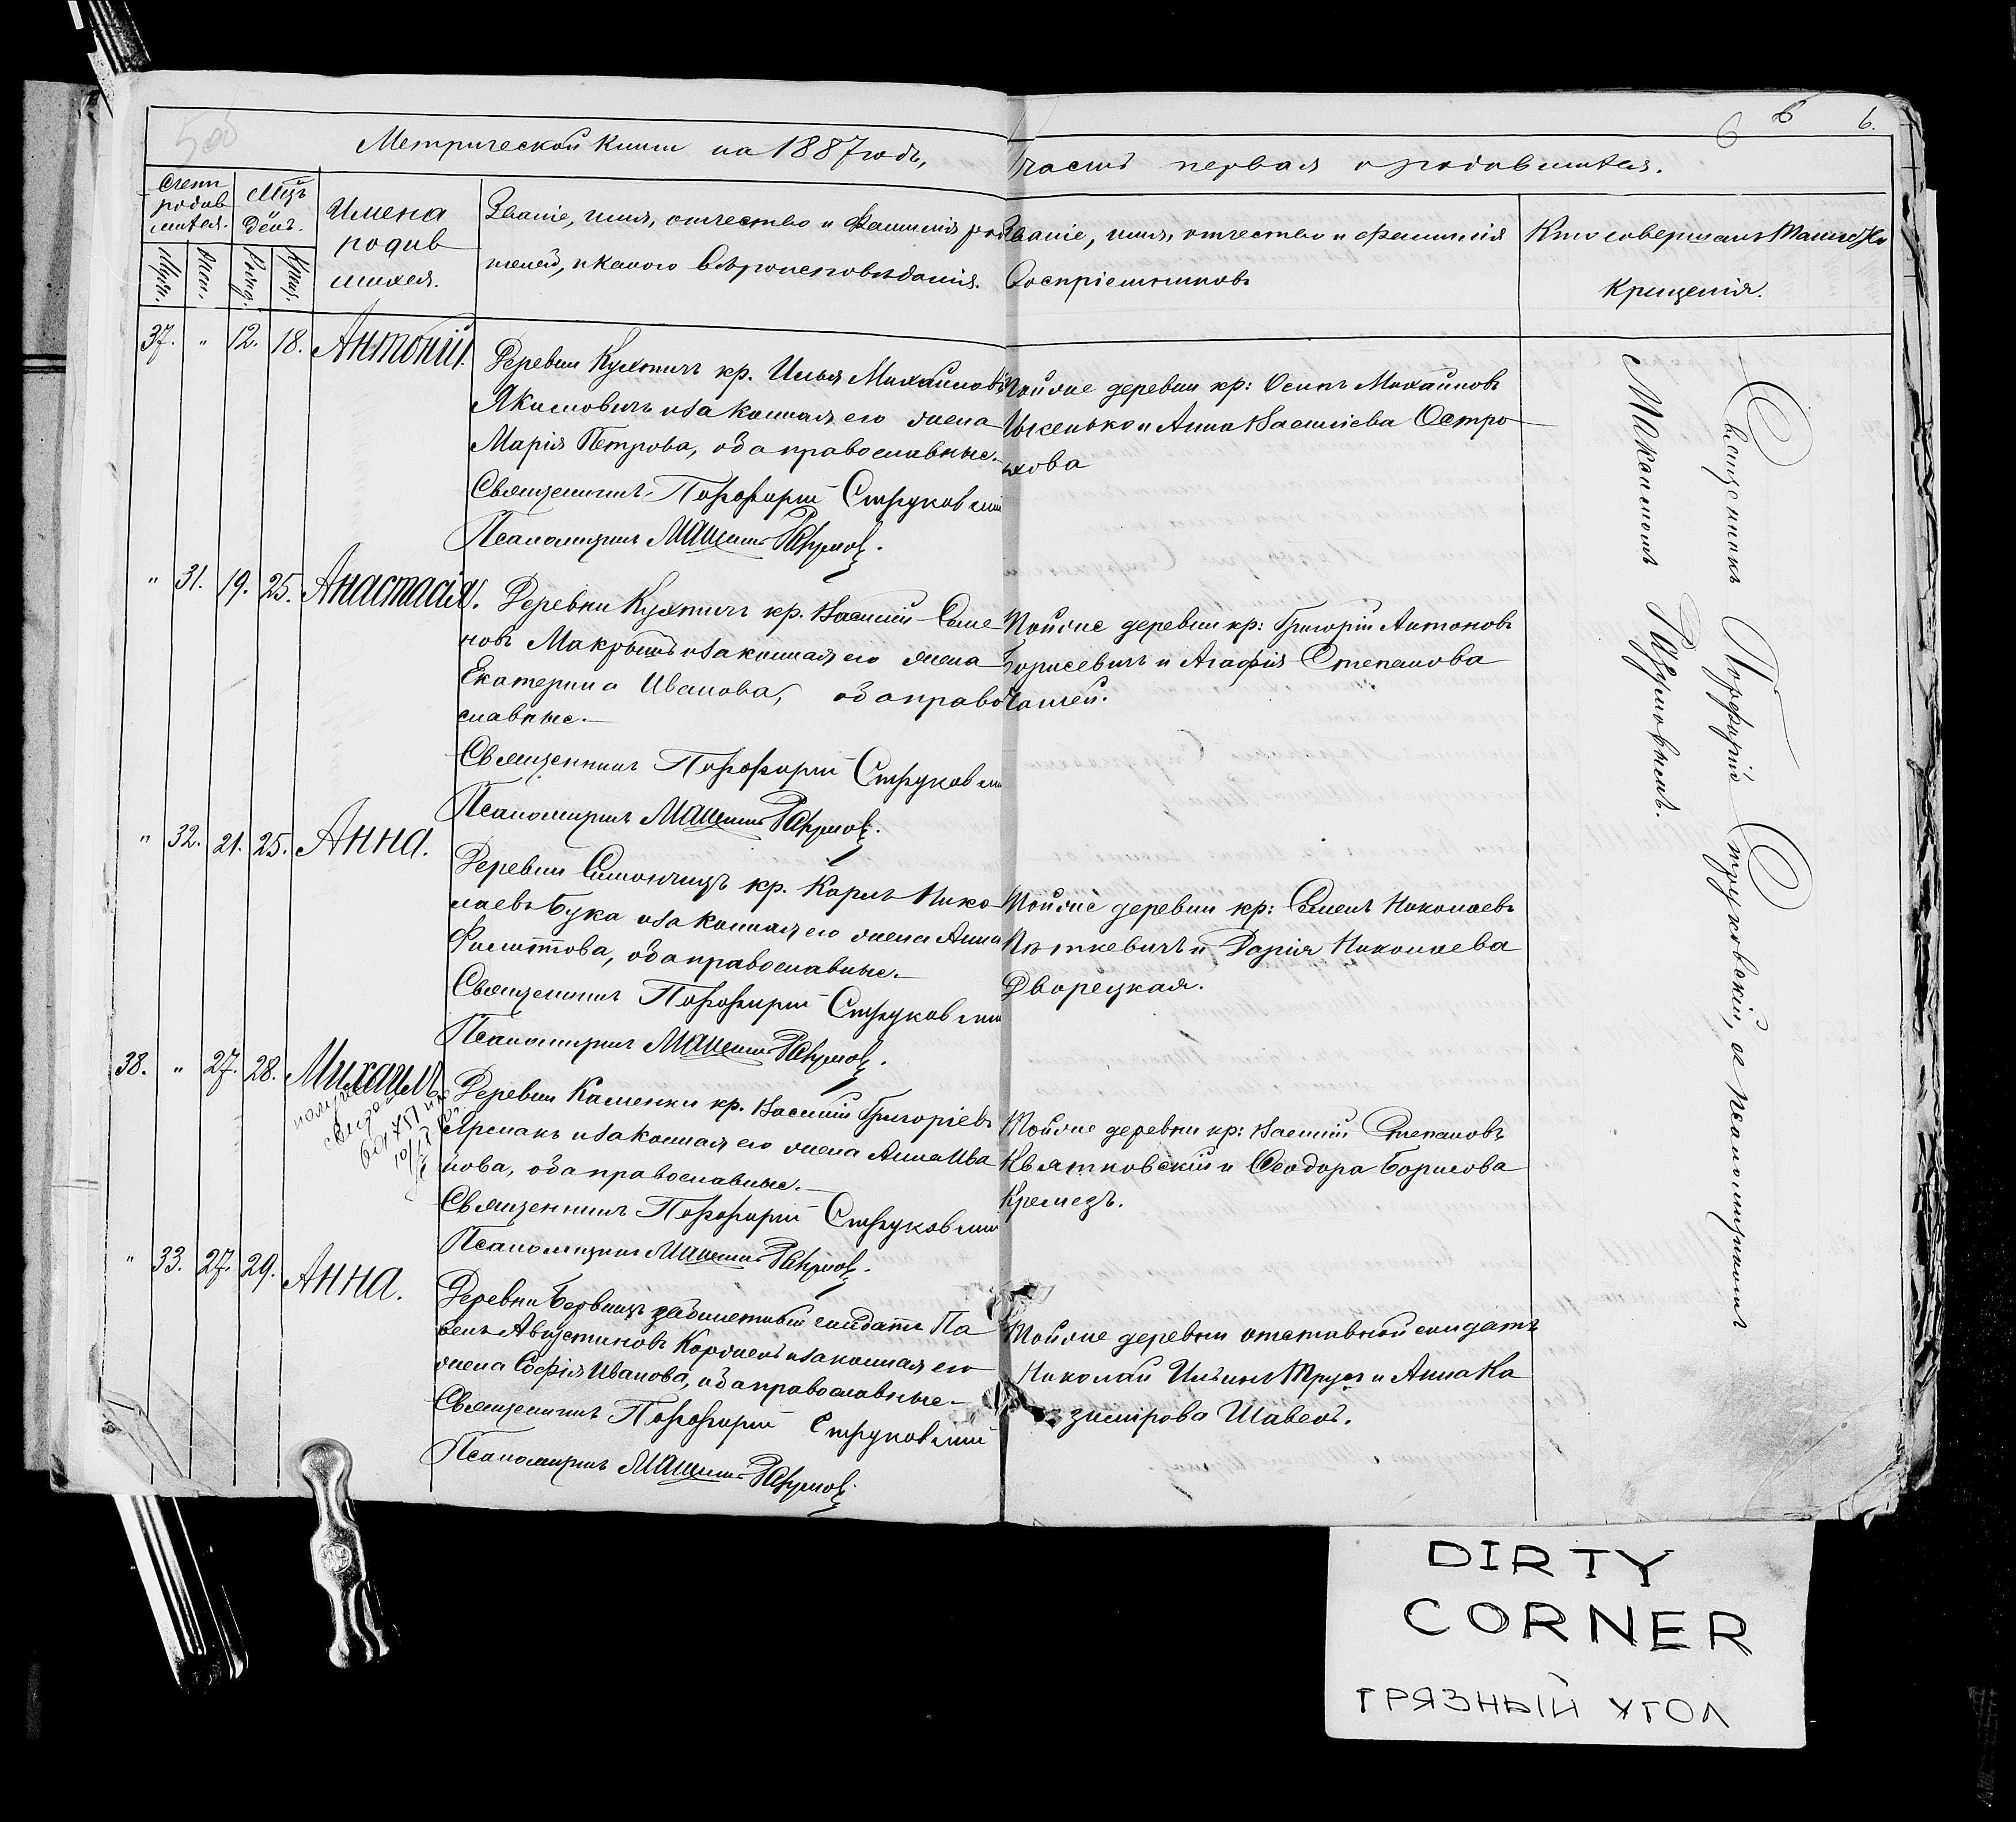 Метрической книги на 1887 годъ,
часть первая о родившихся.
6 6 6.
Счетъ родив шихся.
Мцъ День.
Имена родив шихся.
Званіе, имя, отчество и фамилія роди
телей, и какого вѣроисповѣданія.
Званіе, имя, отчество и фамилія
Воспріемниковъ
Кто совершалъ Таинство
крещенія.
Муж. Жен. Рожд. Крещ.
37. " 12. 18. Антоній.
Деревни Кухтичъ кр. Илья Михаиловъ
Якимовичъ и законная его жена
Марія Петрова, оба православные.
Священникъ Порфирій Струковскій
Псаломщикъ
Тойже деревни кр: Осипъ Михаиловъ
и Анна Васильева Остро
хова
" 31. 19. 25. Анастасія.
Деревни Кухтичъ кр. Василій Семе
новъ и законная его жена
Екатерина Иванова, оба право
славные.
Священникъ Порфирій Струковскій
Псаломщикъ
Тойже деревни кр: Григорій Антоновъ
Борисевичъ и Агафія Степанова
" 32. 21. 25. Анна.
Деревни кр. Карлъ Нико
лаевъ Бука и законная его жена Анна
Филиппова, оба православные.
Священникъ Порфирій Струковскій
Псаломщикъ
Тойже деревни кр: Семенъ Николаевъ
и Дарія Николаева
Дворецкая.
38. " 27. 28. Михаилъ
Деревни Каменки кр. Василій Григорьевъ
Ярмакъ и законная его жена Анна Ива
нова, оба православные.
Священникъ Порфирій Струковскій
Псаломщикъ
Тойже деревни кр: Василій Степановъ
Квятковскій и Ѳеодора Борисова
Кремезъ.
" 33. 27. 29. Анна.
Деревни солдатъ Па
велъ Августиновъ и законная его
жена Софія Иванова, оба православные.
Священникъ Порфирій Струковскій
Псаломщикъ
Тойже деревни отставной солдатъ
Николай Ильинъ и Анна Ка
зимірова
Священникъ Порфирій Струковскій, съ псаломщикомъ
DIRTY
CORNER
ГРЯЗНЫЙ УГОЛ